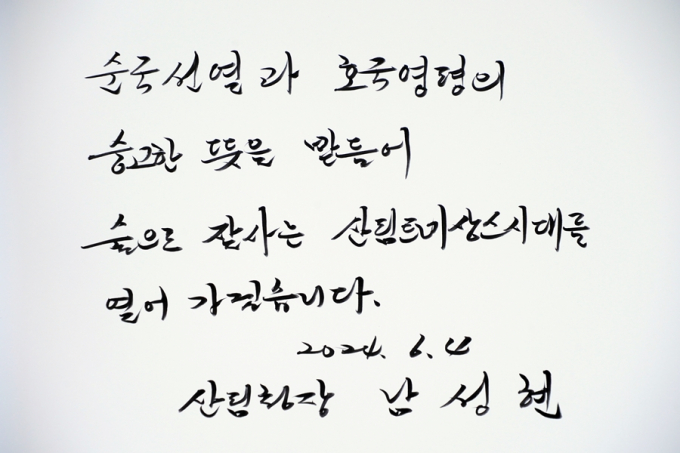 순국선열과 호국영령의
숭고한 뜻을 받들어
숲으로 잘사는 산림르네상스시대를
열어 가겠습니다.
2024. 6. 4
산림청장 남성현